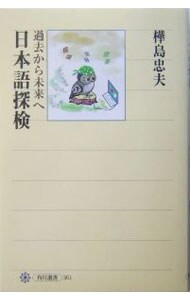 樺島忠夫
過去から未来へ
日本語探検
角川選書